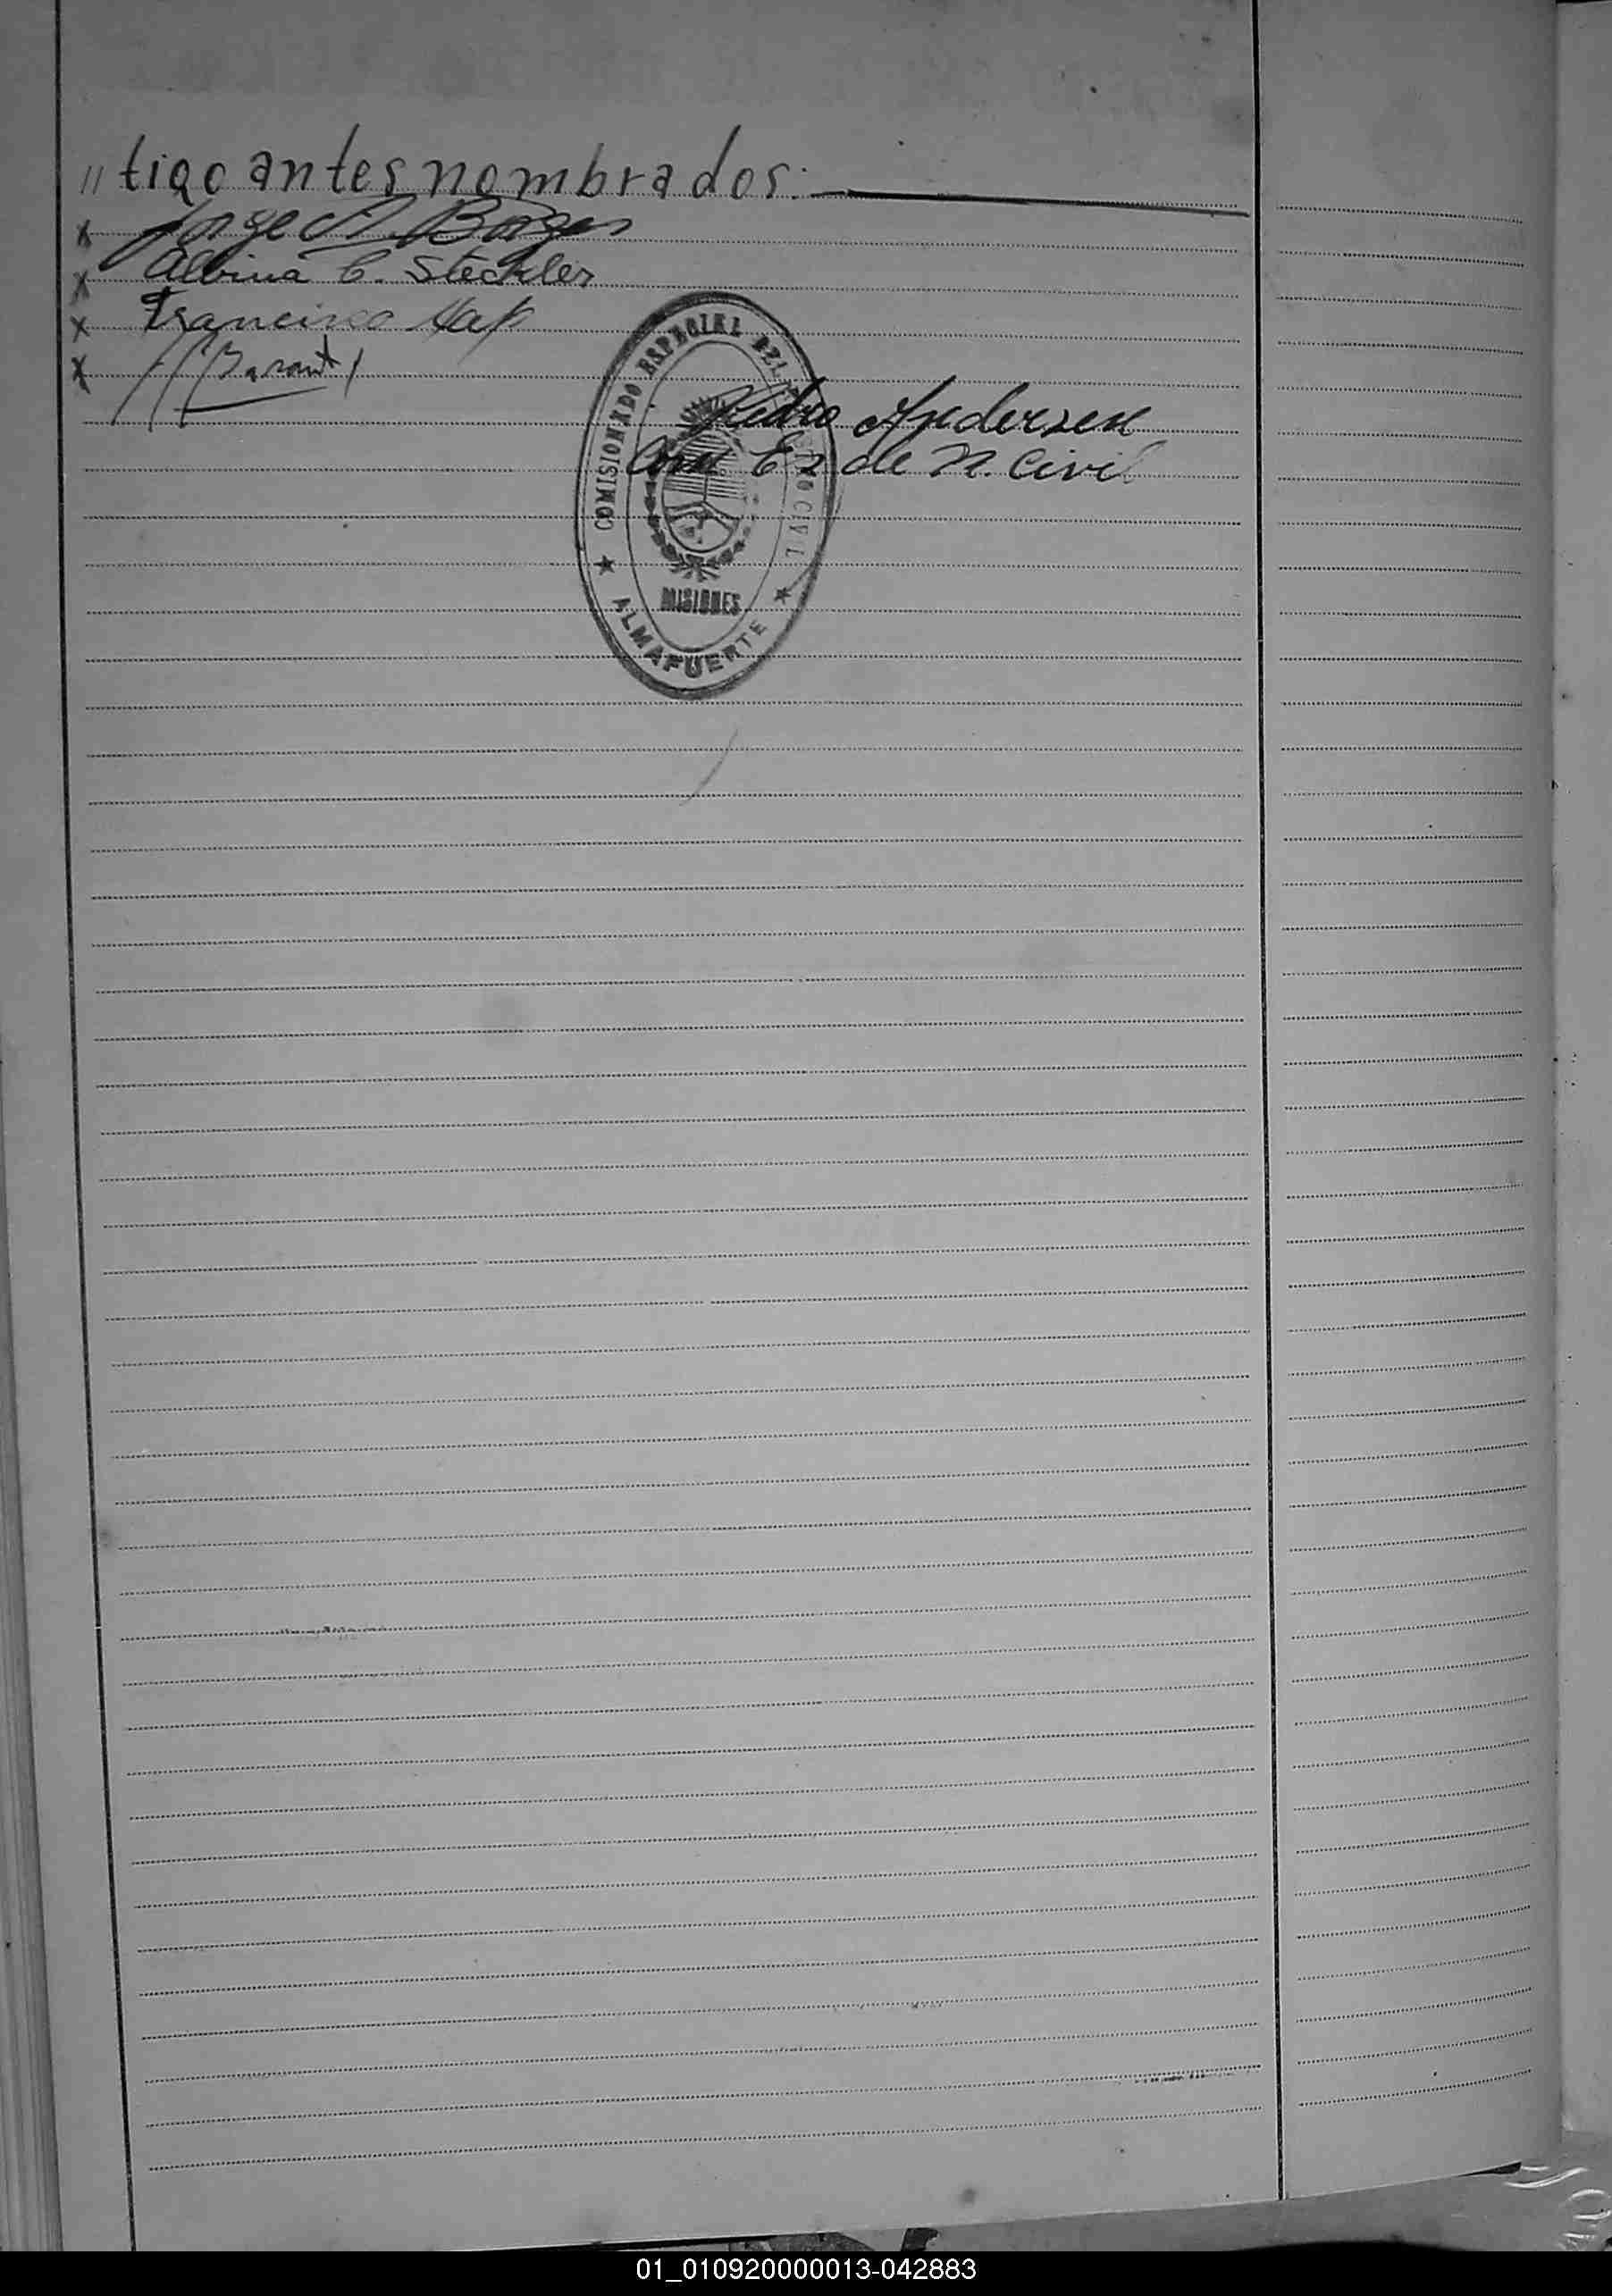 // tigo antes nombrados:
x Jorge A. Borges
x Albina C. Steckler
x Francisco
x
COMISIONADO ESPECIAL DEL CIVIL
Pedro Andersen
Com Es de R. Civil
MISIONES
★ ALMAFUERTE ★
01_010920000013-042883